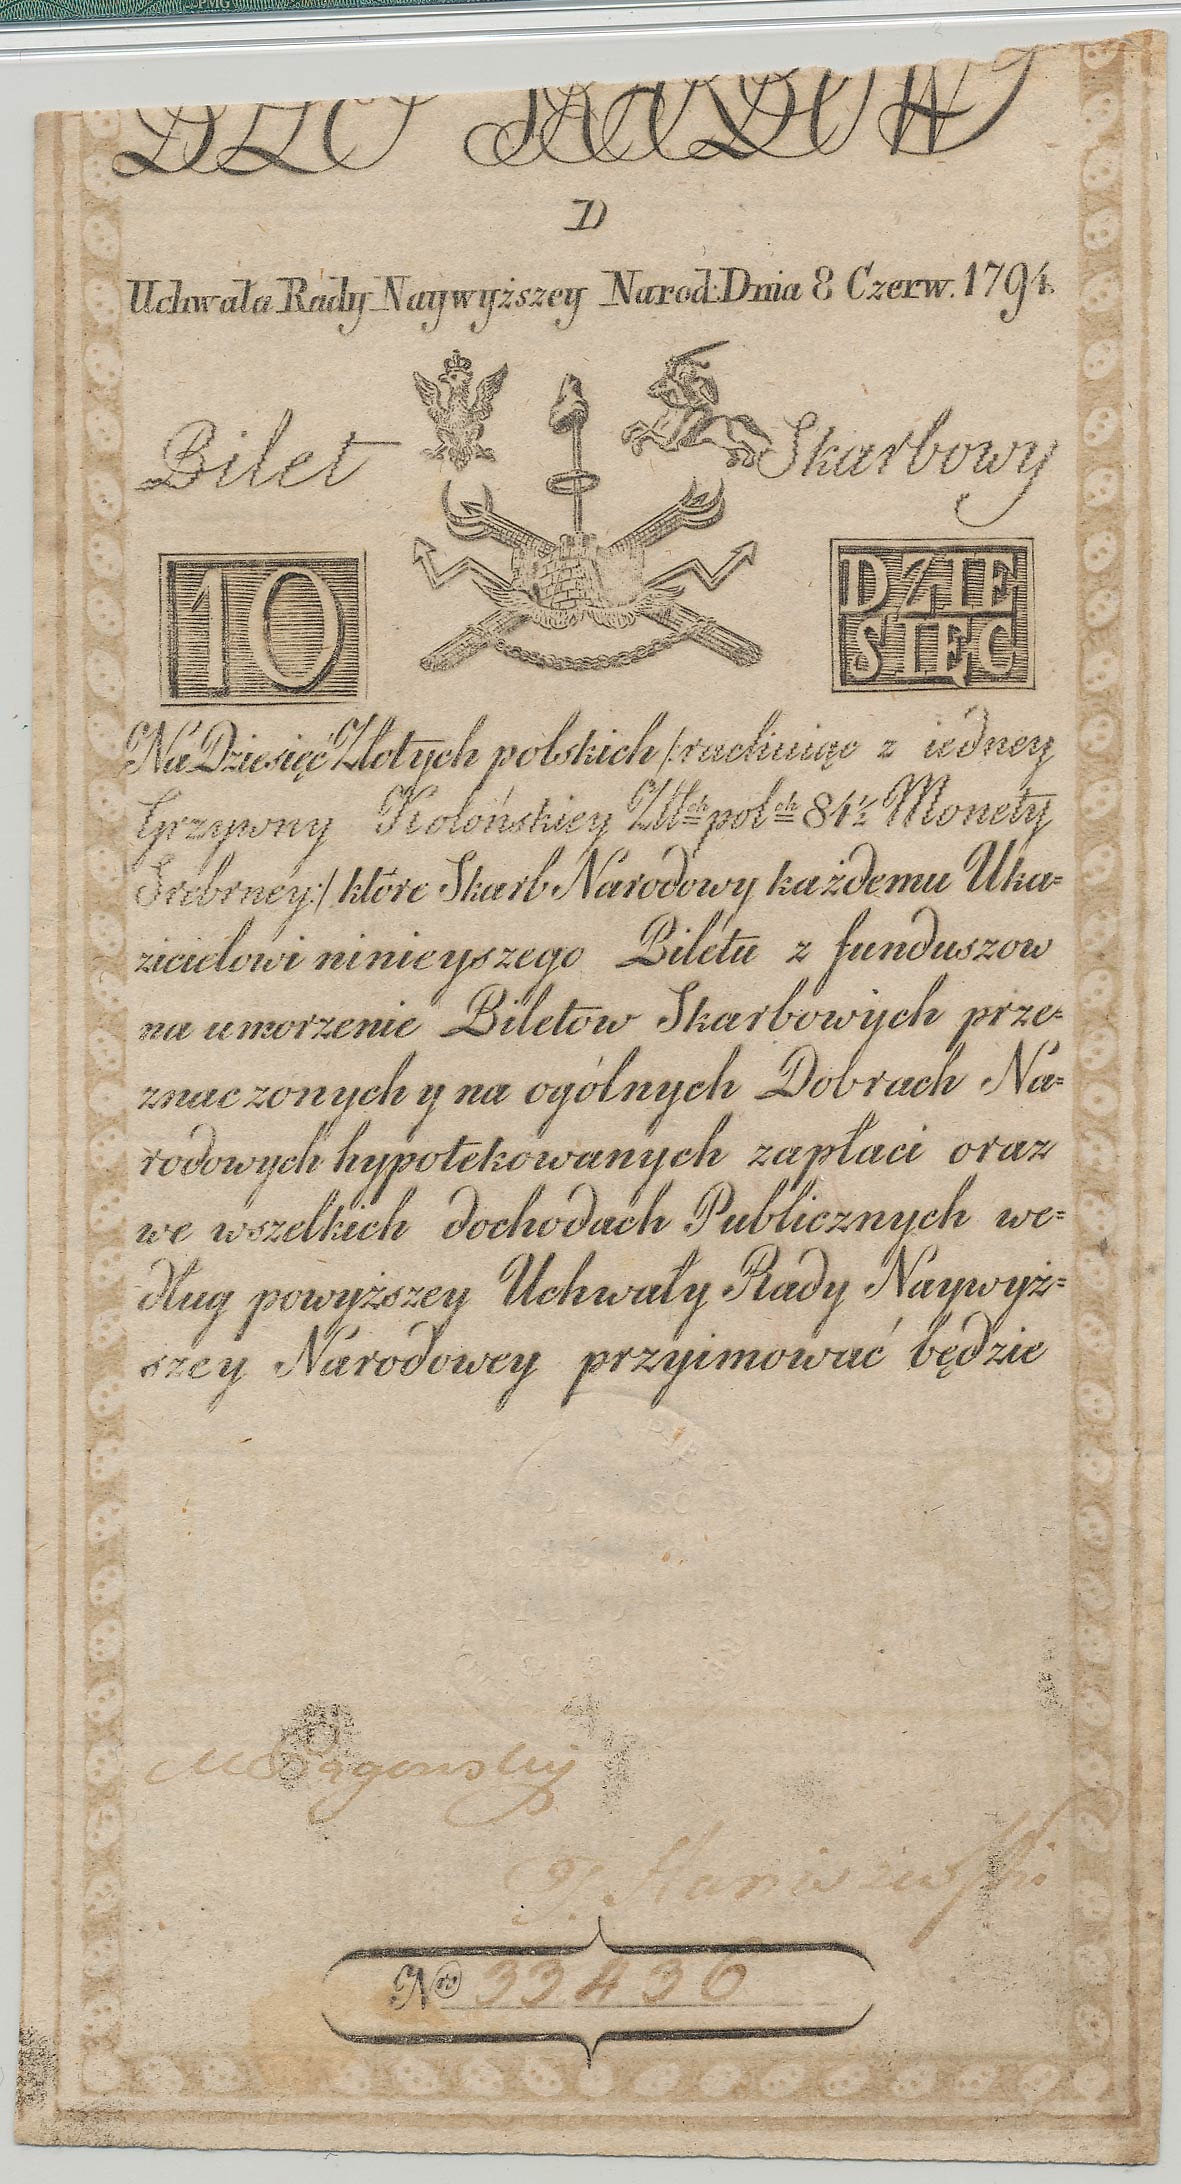 PMG
D
Uchwała Rady Naywyższey Narod: Dnia 8 Czerw. 1794.
Bilet Skarbowy
10
DZIE
SIĘC
Na Dziesięć Złotych polskich /: rachuiąc z iedney
Grzywny Kolońskiey Złł^ch pol^ch 84½ Monety
Srebrney :/ które Skarb Narodowy każdemu Uka=
zicielowi ninieyszego Biletu z funduszow
na umorzenie Biletow Skarbowych prze=
znaczonych y na ogólnych Dobrach Na=
rodowych hypotekowanych zapłaci oraz
we wszelkich dochodach Publicznych we=
dług powyższey Uchwały Rady Naywyż=
szey Narodowey przyimować będzie
N^ro 33436